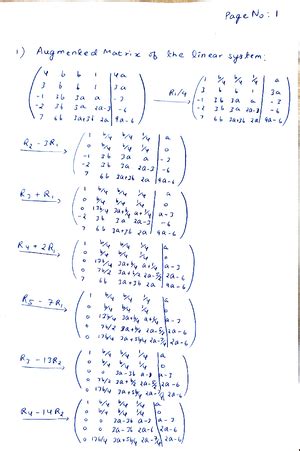 Page No: 1
1) Augmented Matrix of the linear system:
4 b b 1 | 4a
3 b b 1 | 3a
-1 3b 3a a | -3
-2 3b 3a 2a-3 | -6
7 6b 3a+3b 2a | 9a-6
R1/4
1 b/4 b/4 1/4 | a
3 b b 1 | 3a
-1 3b 3a a | -3
-2 3b 3a 2a-3 | -6
7 6b 3a+3b 2a | 9a-6
R2 - 3R1
1 b/4 b/4 1/4 | a
0 b/4 b/4 1/4 | 0
-1 3b 3a a | -3
-2 3b 3a 2a-3 | -6
7 6b 3a+3b 2a | 9a-6
R3 + R1
1 b/4 b/4 1/4 | a
0 b/4 b/4 1/4 | 0
0 13b/4 3a+b/4 a+1/4 | a-3
-2 3b 3a 2a-3 | -6
7 6b 3a+3b 2a | 9a-6
R4 + 2R1
1 b/4 b/4 1/4 | a
0 b/4 b/4 1/4 | 0
0 13b/4 3a+b/4 a+1/4 | a-3
0 7b/2 3a+b/2 2a-5/2 | 2a-6
7 6b 3a+3b 2a | 9a-6
R5 - 7R1
1 b/4 b/4 1/4 | a
0 b/4 b/4 1/4 | 0
0 13b/4 3a+b/4 a+1/4 | a-3
0 7b/2 3a+b/2 2a-5/2 | 2a-6
0 17b/4 3a+5b/4 2a-7/4 | 2a-6
R3 - 13R2
1 b/4 b/4 1/4 | a
0 b/4 b/4 1/4 | 0
0 0 3a-3b a-3 | a-3
0 7b/2 3a+b/2 2a-5/2 | 2a-6
0 17b/4 3a+5b/4 2a-7/4 | 2a-6
R4 - 14R2
1 b/4 b/4 1/4 | a
0 b/4 b/4 1/4 | 0
0 0 3a-3b a-3 | a-3
0 0 3a-3b 2a-6 | 2a-6
0 17b/4 3a+5b/4 2a-7/4 | 2a-6